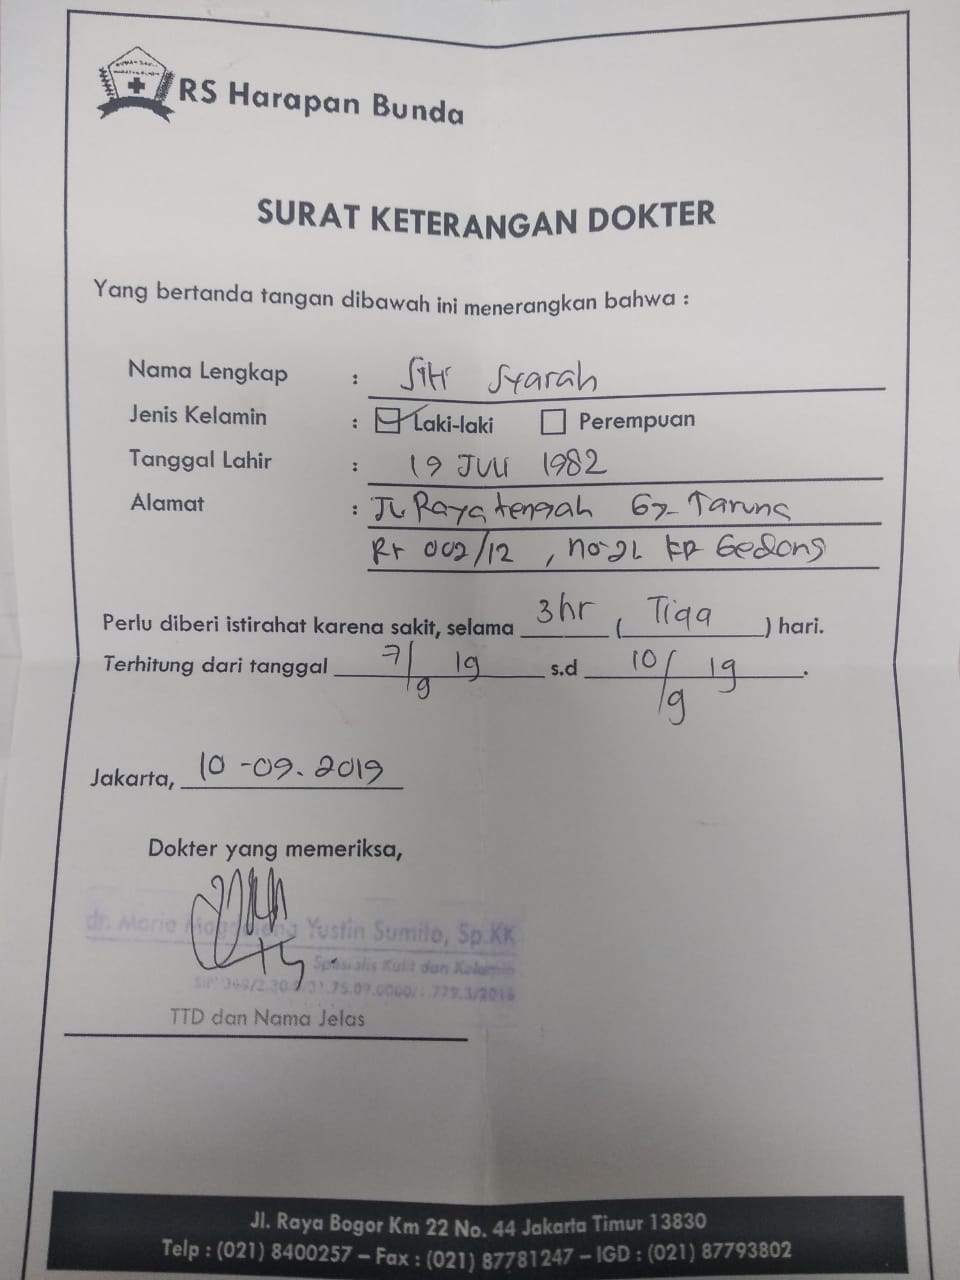 RS Harapan Bunda
SURAT KETERANGAN DOKTER
Yang bertanda tangan dibawah ini menerangkan bahwa :
Nama Lengkap : Siti Syarah
Jenis Kelamin : Laki-laki Perempuan
Tanggal Lahir : 19 Juli 1982
Alamat : JL Raya tengah Gg Taruna
Rt 002/12 , no 2L kp Gedong
Perlu diberi istirahat karena sakit, selama 3hr ( Tiga ) hari.
Terhitung dari tanggal 7/9 19 s.d 10/9 19.
Jakarta, 10-09.2019
Dokter yang memeriksa,
dr. Maria Yustin Sumilo, Sp.KK
Spesialis Kulit dan Kelamin
TTD dan Nama Jelas
Jl. Raya Bogor Km 22 No. 44 Jakarta Timur 13830
Telp : (021) 8400257 – Fax : (021) 87781247 – IGD : (021) 87793802